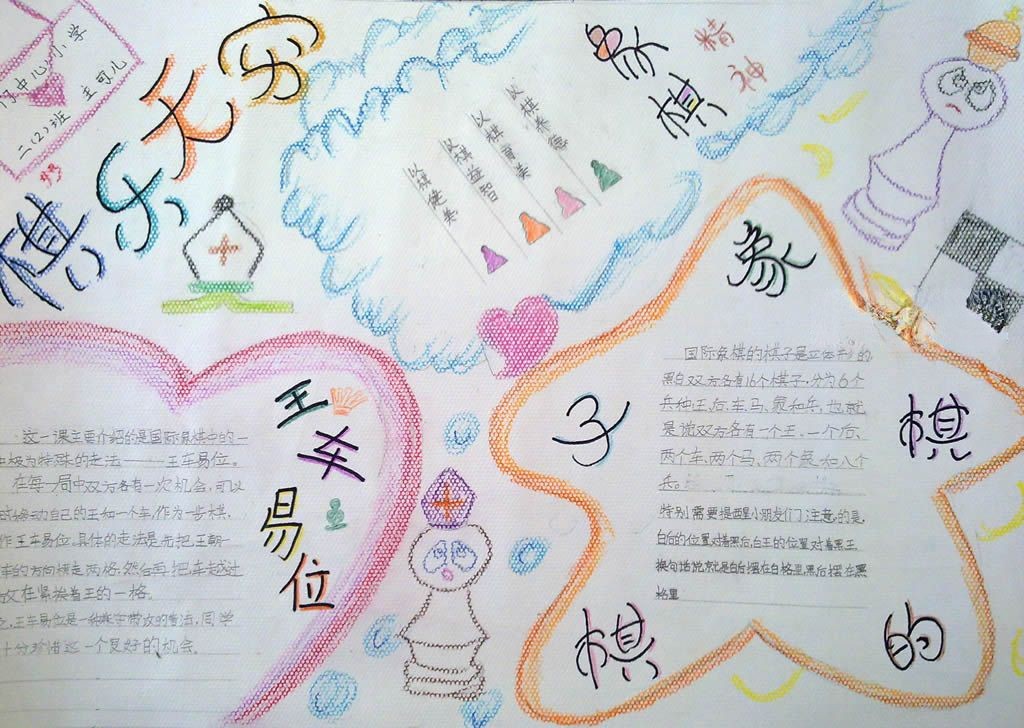 中心小学
二(2)班
王可儿
棋乐无穷
象棋
精神
以棋健美
以棋益智
以棋育美
以棋养德
王车易位
这一课主要介绍的是国际象棋中的一
极为特殊的走法——王车易位。
在每一局中双方各有一次机会,可以
动自己的王和一个车,作为一步棋,
作王车易位。具体的走法是先把王朝一
车的方向横走两格,然后再把车越过
放在紧挨着王的一格。
王车易位是一种寓守带攻的着法,同学
十分珍惜这一个良好的机会。
象棋的棋子
国际象棋的棋子是立体形的
黑白双方各有16个棋子,分为6个
兵种王、后、车、马、象和兵,也就
是说双方各有一个王、一个后、
两个车、两个马、两个象和八个
兵。
特别需要提醒小朋友们注意的是,
白后的位置对着黑后,白王的位置对着黑王
换句话说就是白后摆在白格里,黑后摆在黑
格里